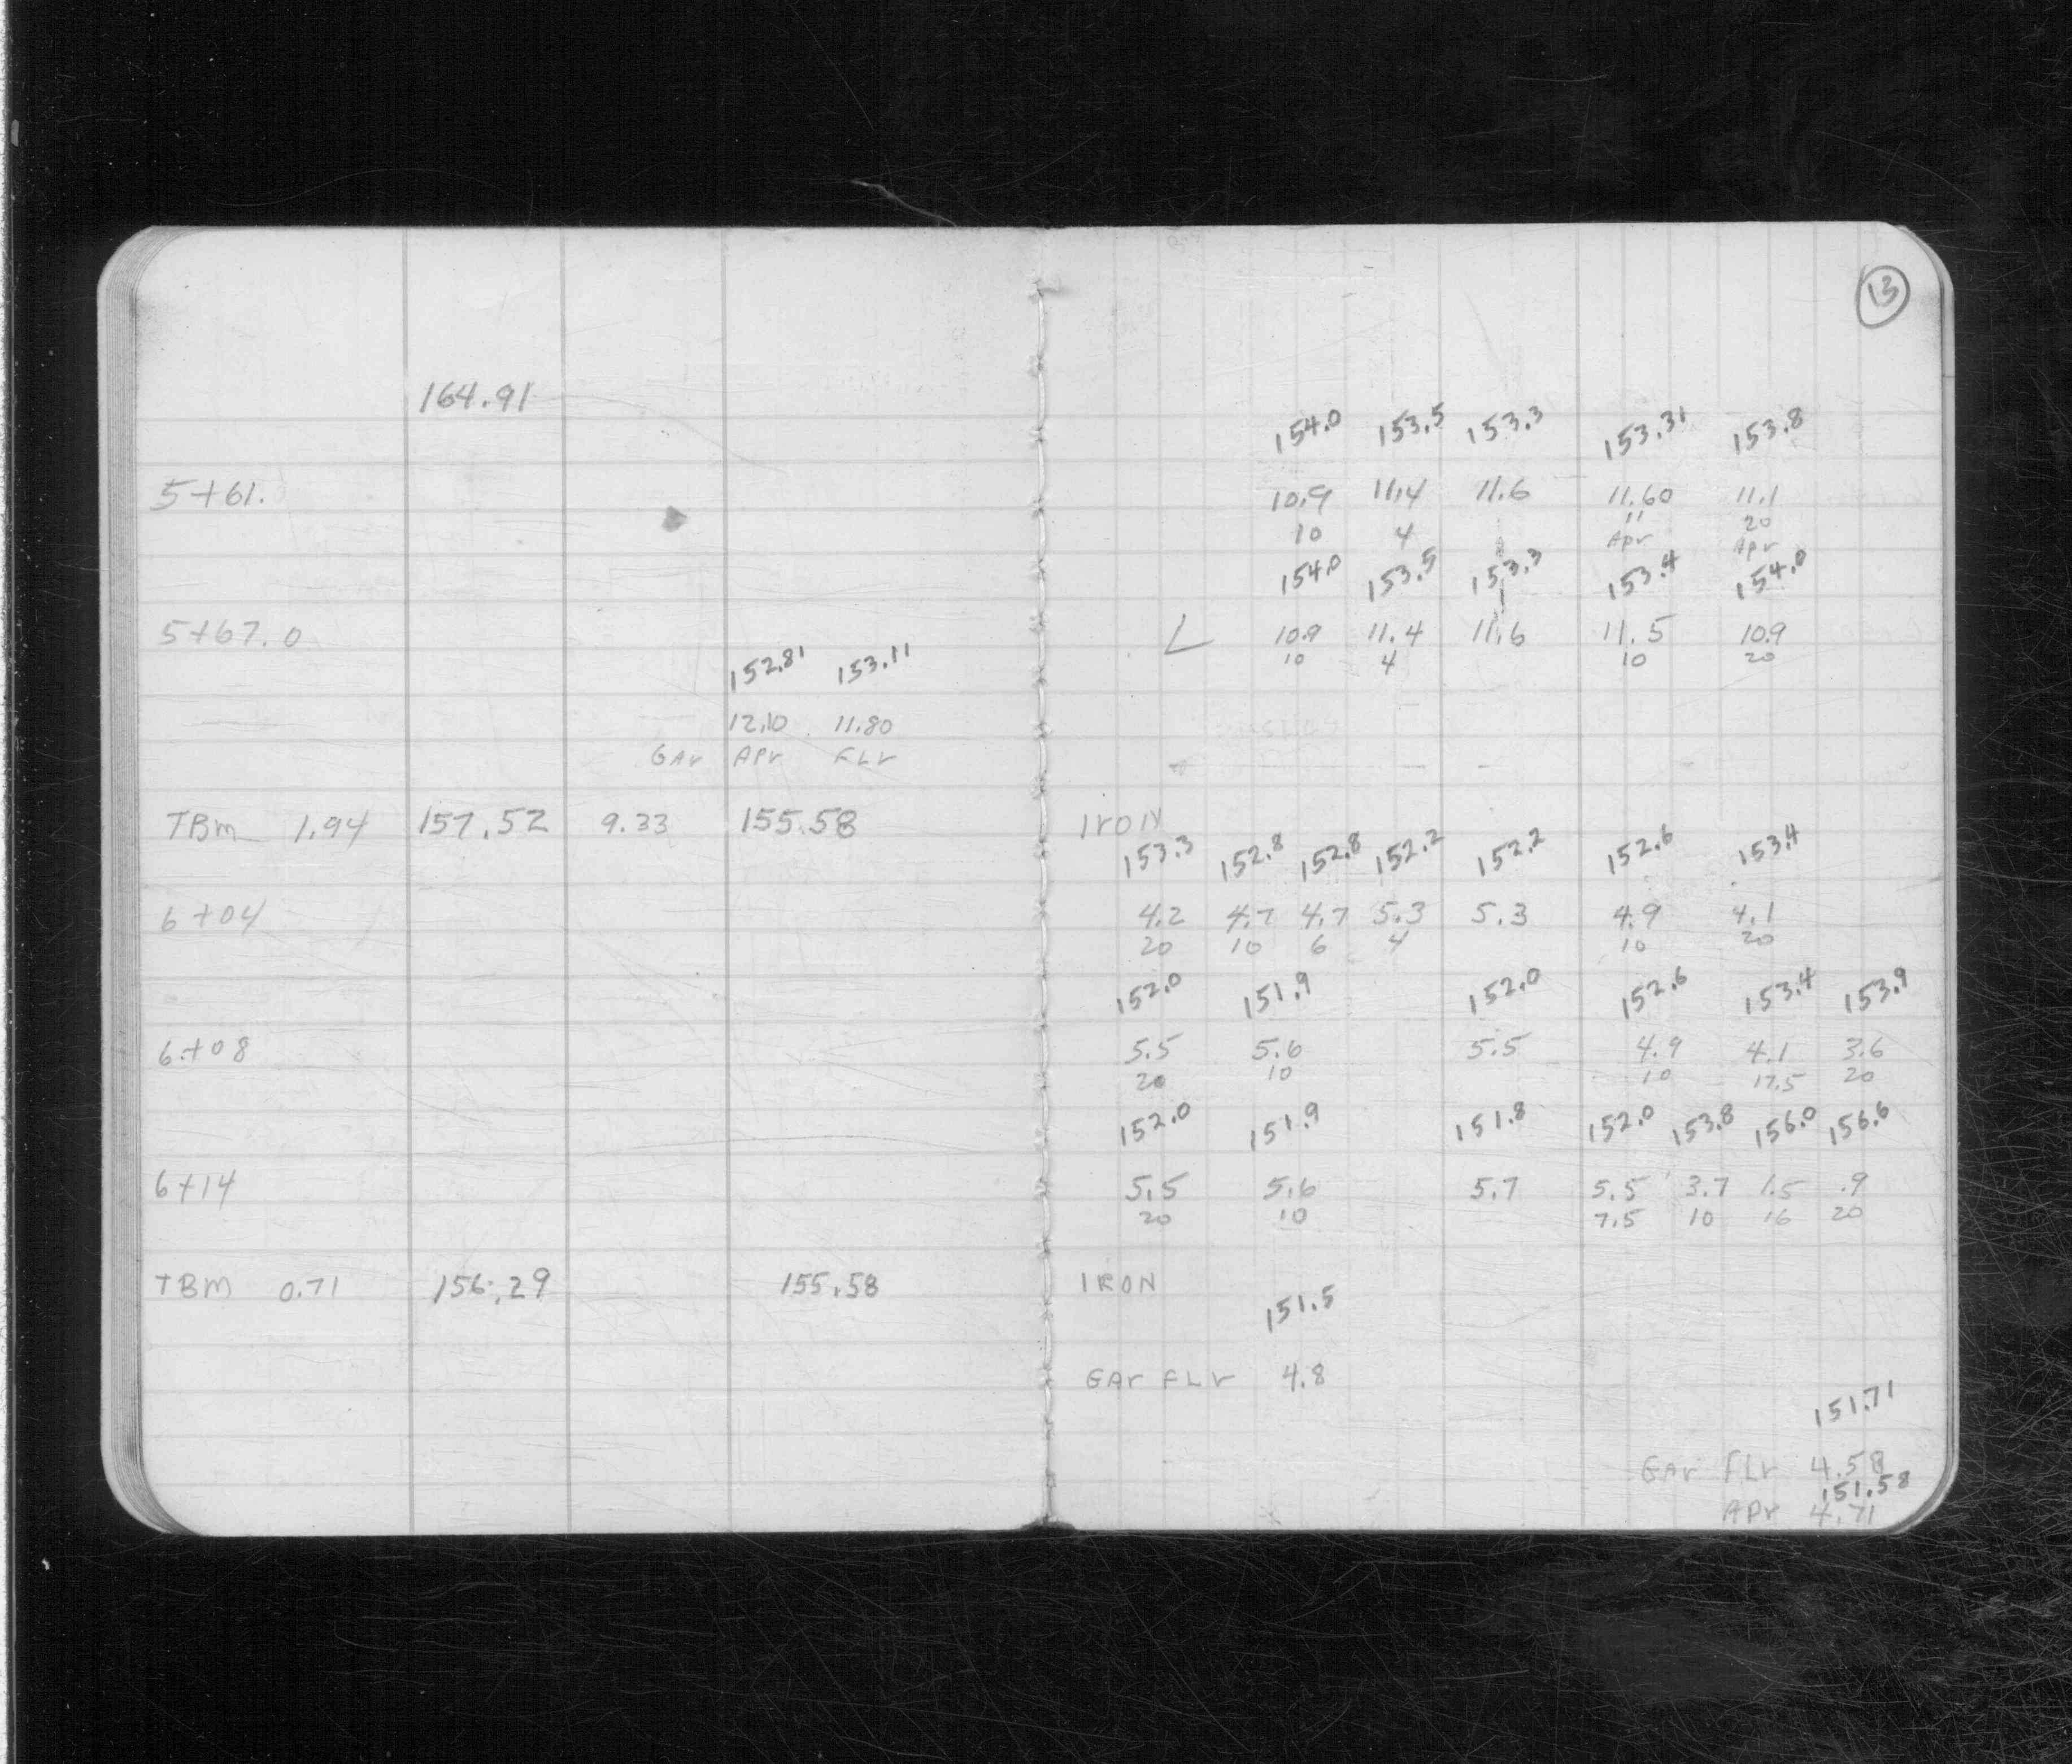 13
164.91
154.0 153.5 153.3 153.31 153.8
5+61. 10.9 11.4 11.6 11.60 11.1
10 4 11 20
Apr Apr
154.0 153.5 153.3 153.4 154.0
5+67.0 L 10.9 11.4 11.6 11.5 10.9
10 4 10 20
152.81 153.11
12.10 11.80
GAr APr FLr
TBM 1.94 157.52 9.33 155.58 IrON
153.3 152.8 152.8 152.2 152.2 152.6 153.4
6+04 4.2 4.7 4.7 5.3 5.3 4.9 4.1
20 10 6 4 10 20
152.0 151.9 152.0 152.6 153.4 153.9
6+08 5.5 5.6 5.5 4.9 4.1 3.6
20 10 10 17.5 20
152.0 151.9 151.8 152.0 153.8 156.0 156.6
6+14 5.5 5.6 5.7 5.5 3.7 1.5 .9
20 10 7.5 10 16 20
TBM 0.71 156.29 155.58 IRON
151.5
GAr FLr 4.8
151.71
GAr FLr 4.58
151.58
APr 4.71